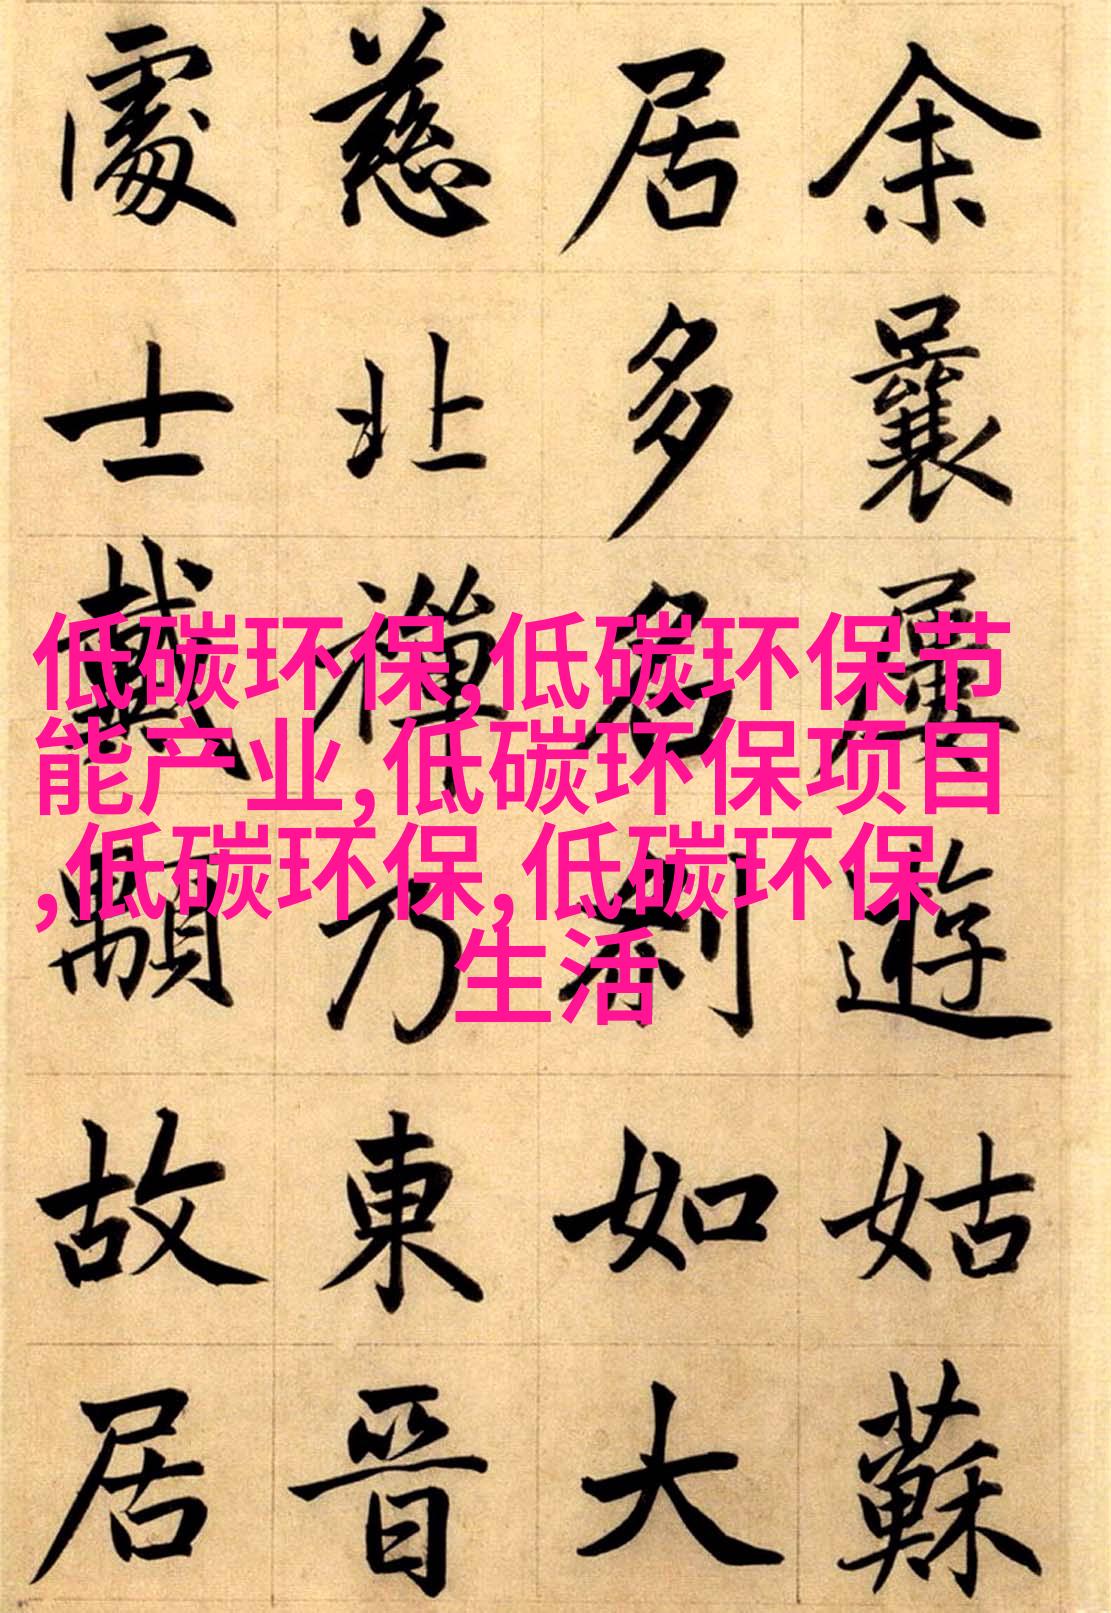 余曩屢遊姑蘇
居多名刹如大
慈北禪乃東晉
處士戴顒故居
低碳环保,低碳环保节
能产业,低碳环保项目
,低碳环保,低碳环保
生活